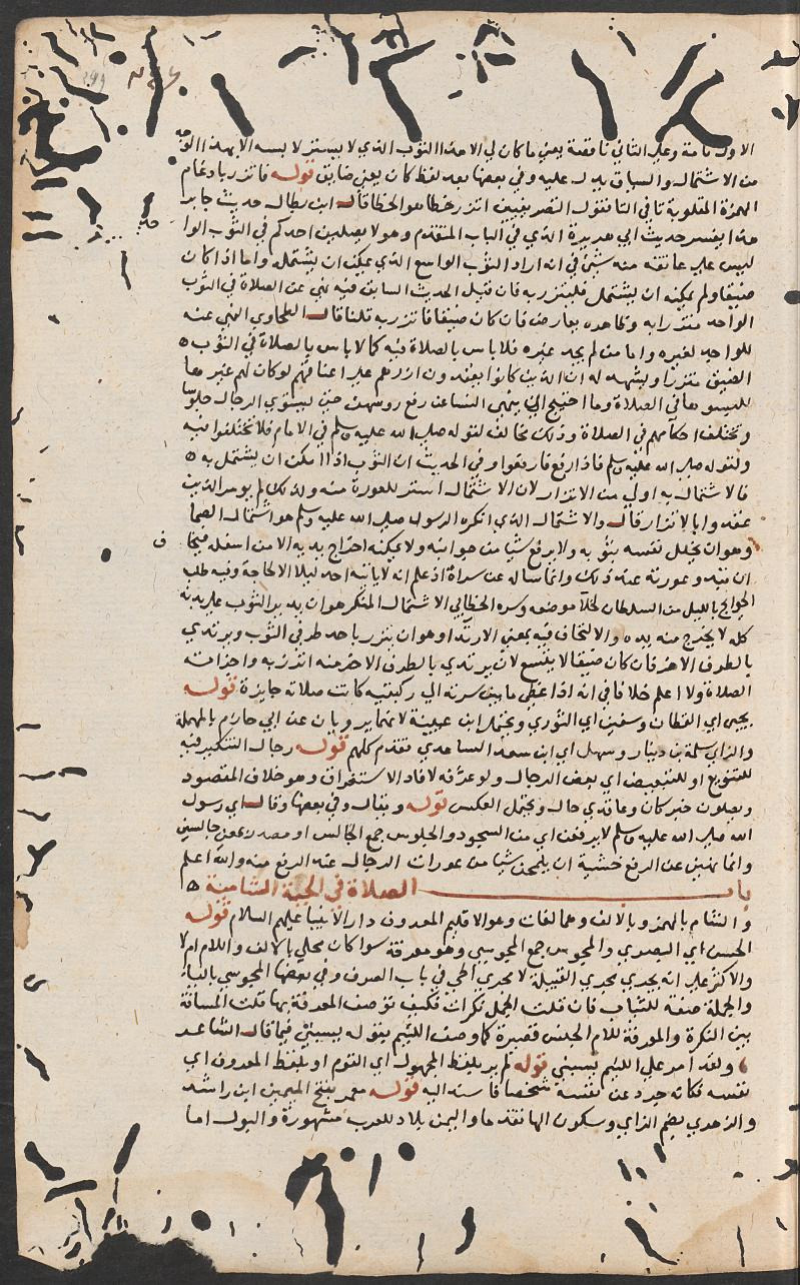 الاول تامة وعلى الثاني ناقصة يعني ما كان لي الا هذا الثوب الذي لا يستر لا بسه الا بهذا النوع
من الاشتمال والسياق يدل عليه وفي بعضها بعد لفظ كان يعني ضايق قوله فاتزر بادغام
الهمزة المقلوبة تا في التا فقول التصريفيين اتزر خطا هو الخطا قال ابن بطال حديث جابر
هذا يفسر حديث ابي هريرة الذي في الباب المتقدم وهو لا يصلين احدكم في الثوب الوا
ليس على عاتقه منه شي في انه اراد الثوب الواسع الذي يمكن ان يشتمله واما اذا كان
ضيقا ولم يمكنه ان يشتمل فليتزر به فان قيل الحديث السابق فيه نهي عن الصلاة في الثوب
الواحد متزرا به وظاهره يعارض فان كان ضيقا فاتزر به قلنا قال الطحاوي النهي عنه
للواجد لغيره واما من لم يجد غيره فلا باس بالصلاة فيه كما لا باس بالصلاة في الثوب ه
الضيق متزرا ويشهد له ان الذين كانوا يعقدون ازرهم على اعناقهم لو كان لهم غيرها
للبسوها في الصلاة وما احتيج الى نهي النسا عن رفع روسهن حتى يستوي الرجال جلوسا
وتختلف احكامهم في الصلاة وذلك مخالف لقوله صلى الله عليه وسلم في الامام فلا تختلفوا عليه
ولقوله صلى الله عليه وسلم فاذا رفع فارفعوا وفي الحديث ان الثوب اذا امكن ان يشتمل به ه
فالاشتمال به اولى من الاتزار لان الاشتمال استر للعورة منه ولذلك لم يومر الذين
عقدوا بالاتزار قال والاشتمال الذي انكره الرسول صلى الله عليه وسلم هو اشتمال الصما
وهو ان يجلل نفسه بثوبه ولا يرفع شيا من جوانبه ولا يمكنه اخراج يديه الا من اسفله فيخا
ان تبدو عورته عند ذلك وانما ساله عن سراه اذ علم انه لا ياتيه احد ليلا الا لحاجة وفيه طلب
الحوايج بالليل من السلطان لخلاء موضعه وسره الخطابي الاشتمال المنكر هو ان يدير الثوب على بدنه
كله لا يخرج منه يده والالتحاف فيه بمعنى الارتدا وهو ان يتزر باحد طرفي الثوب ويرتدي
بالطرف الاخر فان كان ضيقا لا يتسع لان يرتدي بالطرف الاخر منه اتزر به واجزاته
الصلاة ولا اعلم خلافا في انه اذا غطى ما بين سرته الى ركبتيه كانت صلاته جايزة قوله
يحيى اي القطان وسفين اي الثوري ويحتمل ابن عيينة لانهما يرويان عن ابي حازم بالمهملة
والزاي سلمة بن دينار وسهل اي ابن سعد الساعدي تقدم كلهم قوله رجال التنكير فيه
للتنويع او للتبعيض اي بعض الرجال ولو عرفه لافاد الاستغراق وهو خلاف المقصود
ويصلون خبر كان وعاقدي حال ويحتمل العكس قوله ويقال وفي بعضها وقال اي رسول
الله صلى الله عليه وسلم لا يرفعن اي من السجود والجلوس جمع الجالس او مصدر بمعنى جالسين
وانما نهين عن الرفع خشية ان يلمحن شيا من عورات الرجال عند الرفع منه والله اعلم
باب الصلاة في الجبة الشامية ه
والشام بالهمز وبالالف وهما لغات وهو الاقليم المعروف دار الانبيا عليهم السلام قوله
الحسن اي البصري والمجوس جمع المجوسي وهو معرفة سوا كان محلى بالالف واللام ام لا
والاكثر على انه يجري مجرى القبيلة لا مجرى الحي في باب الصرف وفي بعضها المجوسي بالياء
والجملة صفة للثياب فان قلت الجمل نكرات فكيف توصف المعرفة بها قلت المسافة
بين النكرة والمعرفة للام الجنس قصيرة كما وصف اللئيم بقوله يسبني فيما قال الشاعر
ولقد امر على اللئيم يسبني قوله لم ير بلفظ المجهول اي القوم او بلفظ المعروف اي
نفسه فكانه جرد عن نفسه شخصا فاسند اليه قوله معمر بفتح الميمين ابن راشد
والزهري بضم الزاي وسكون الها تقدما واليمن بلاد للعرب مشهورة والبول اما